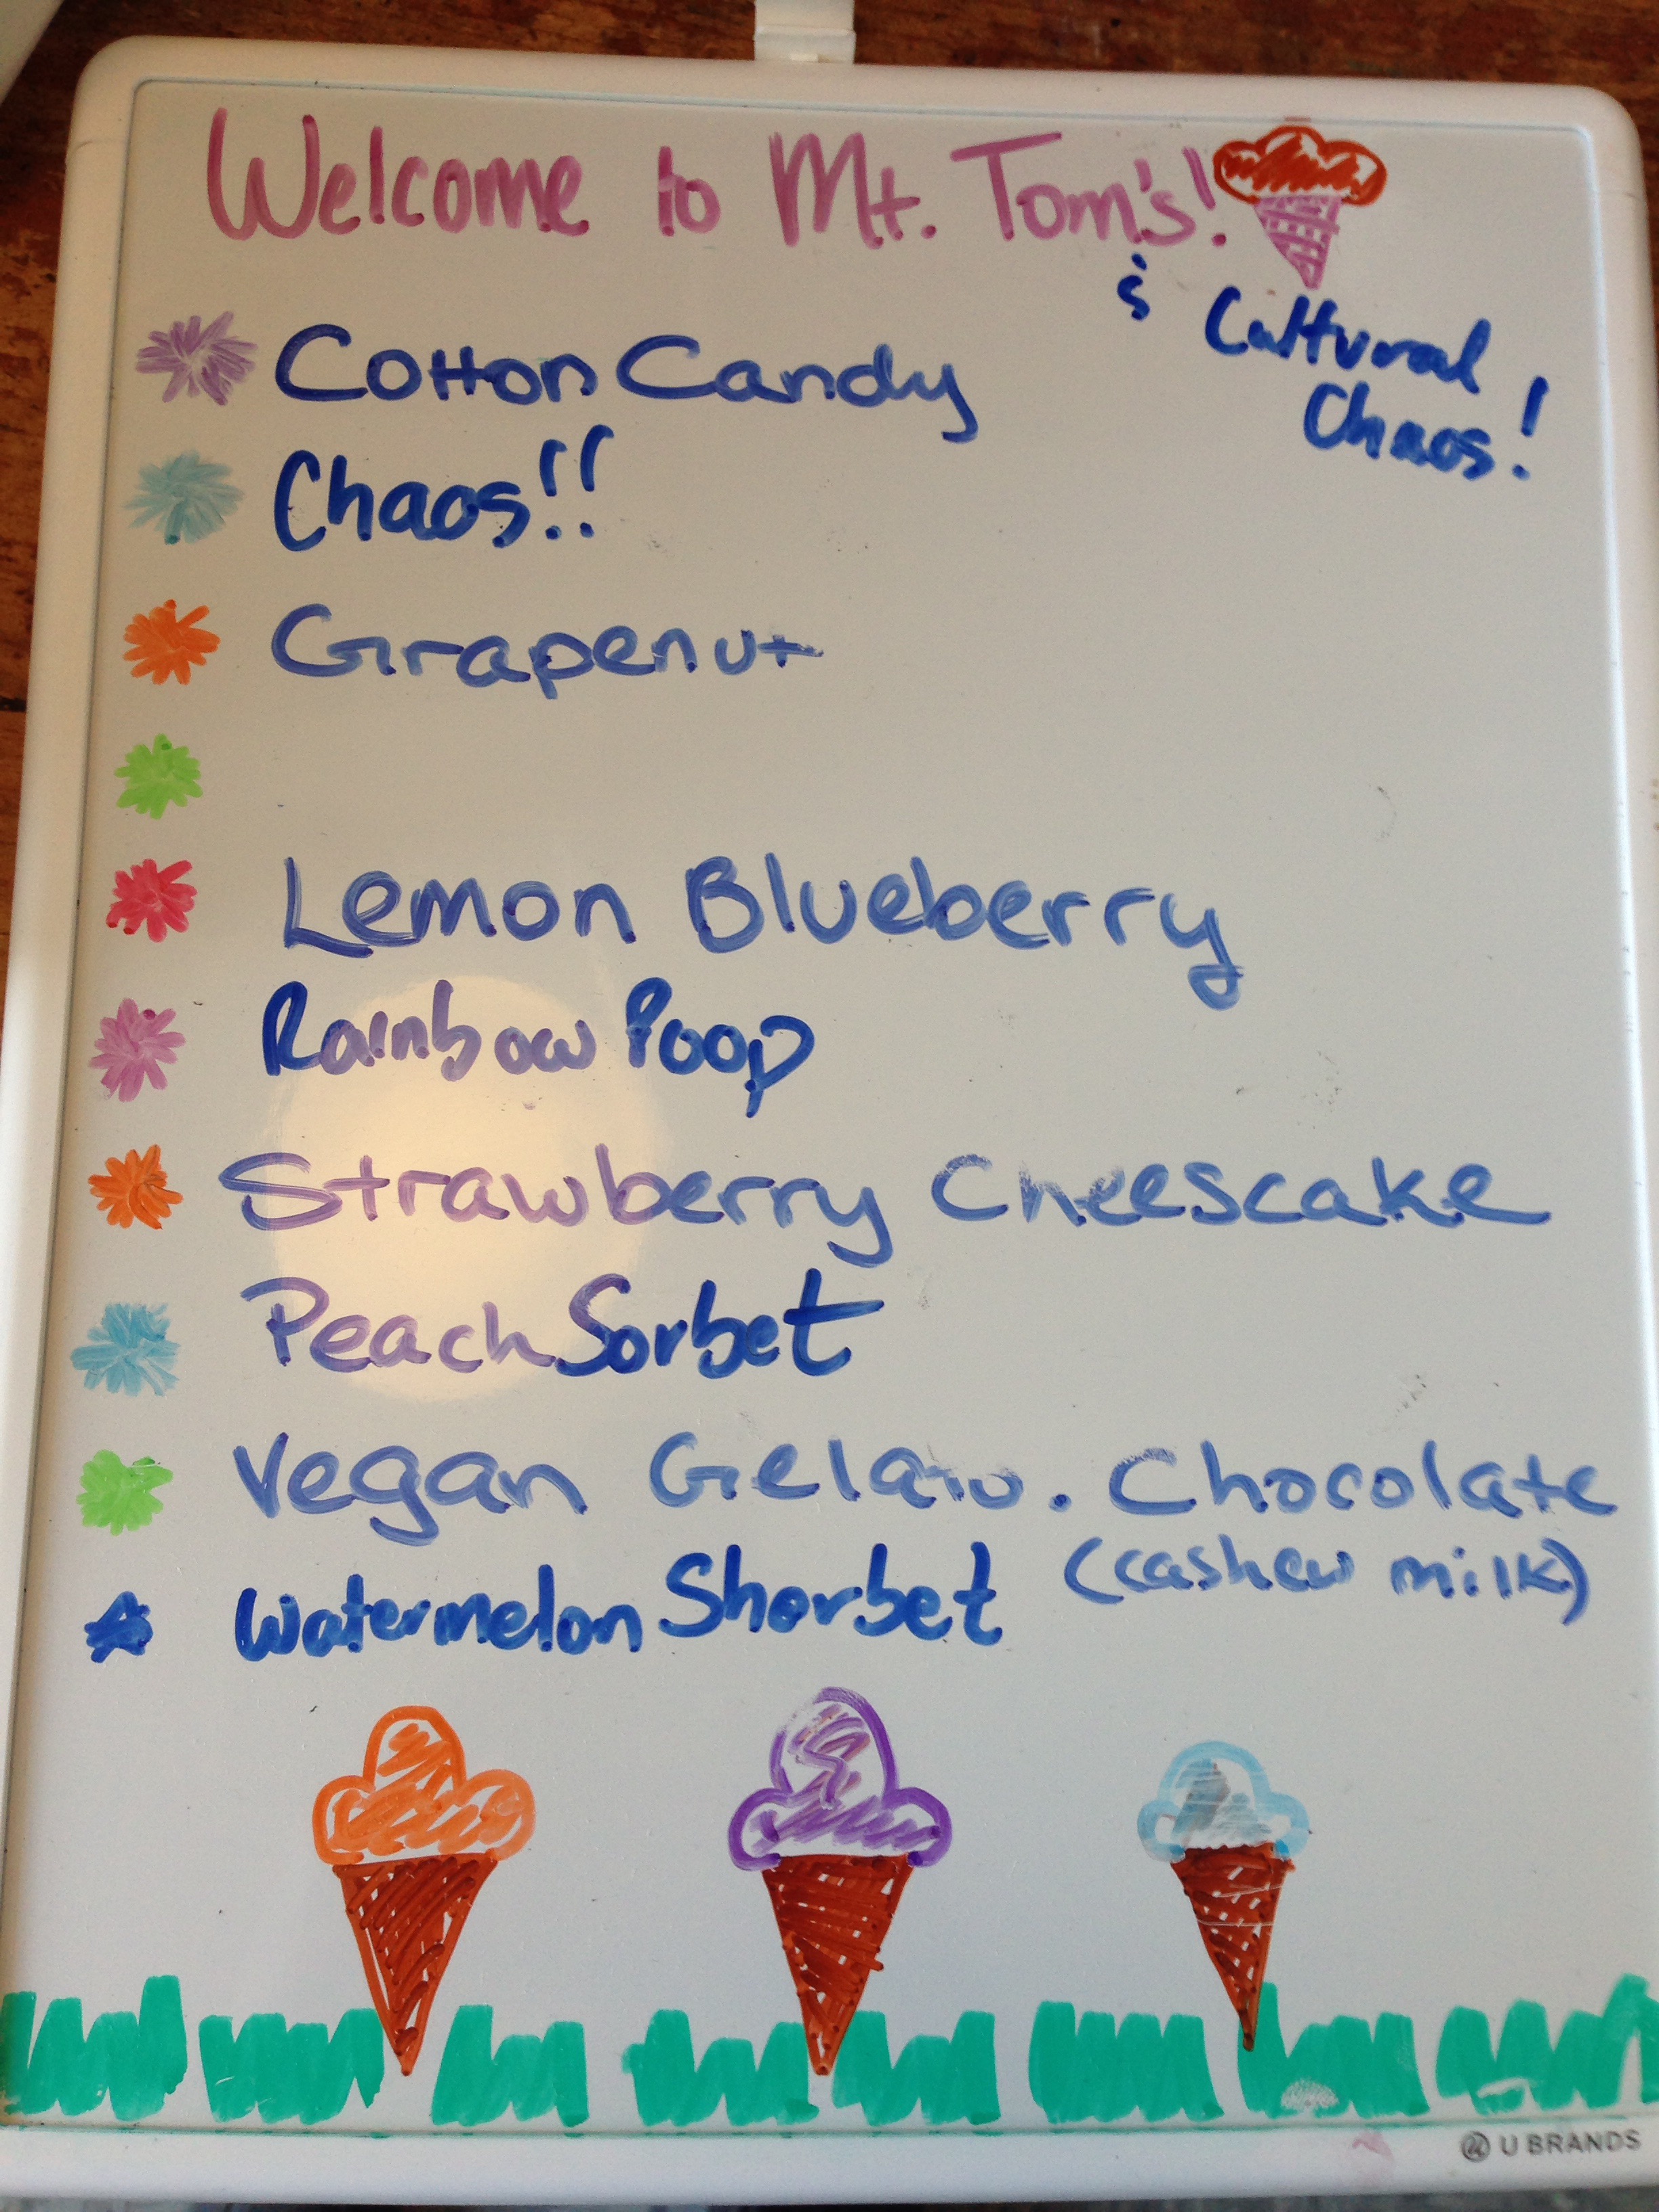 Welcome to Mt. Tom's!
& Cultural
Chaos!
Cotton Candy
Chaos!!
Grapenut
Lemon Blueberry
Rainbow Poop
Strawberry Cheescake
Peach Sorbet
Vegan Gelato. Chocolate
(cashew milk)
Watermelon Shorbet
U BRANDS